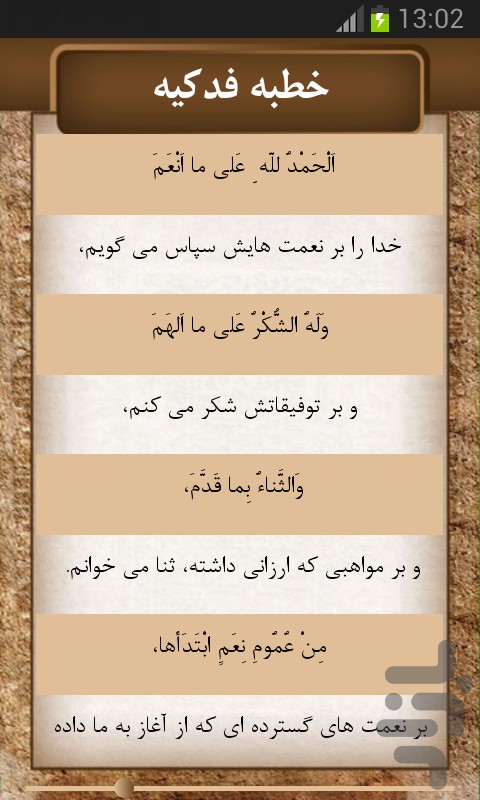 13:02
خطبه فدکیه
اَلْحَمْدُ للّه ِ عَلی ما اَنْعَمَ
خدا را بر نعمت هایش سپاس می گویم،
وَلَهُ الشُّکْرُ عَلی ما اَلهَمَ
و بر توفیقاتش شکر می کنم،
وَالثَّناءُ بِما قَدَّمَ،
و بر مواهبی که ارزانی داشته، ثنا می خوانم.
مِنْ عُمُومِ نِعَمٍ ابْتَدَأها،
بر نعمت های گسترده ای که از آغاز به ما داده
بازار